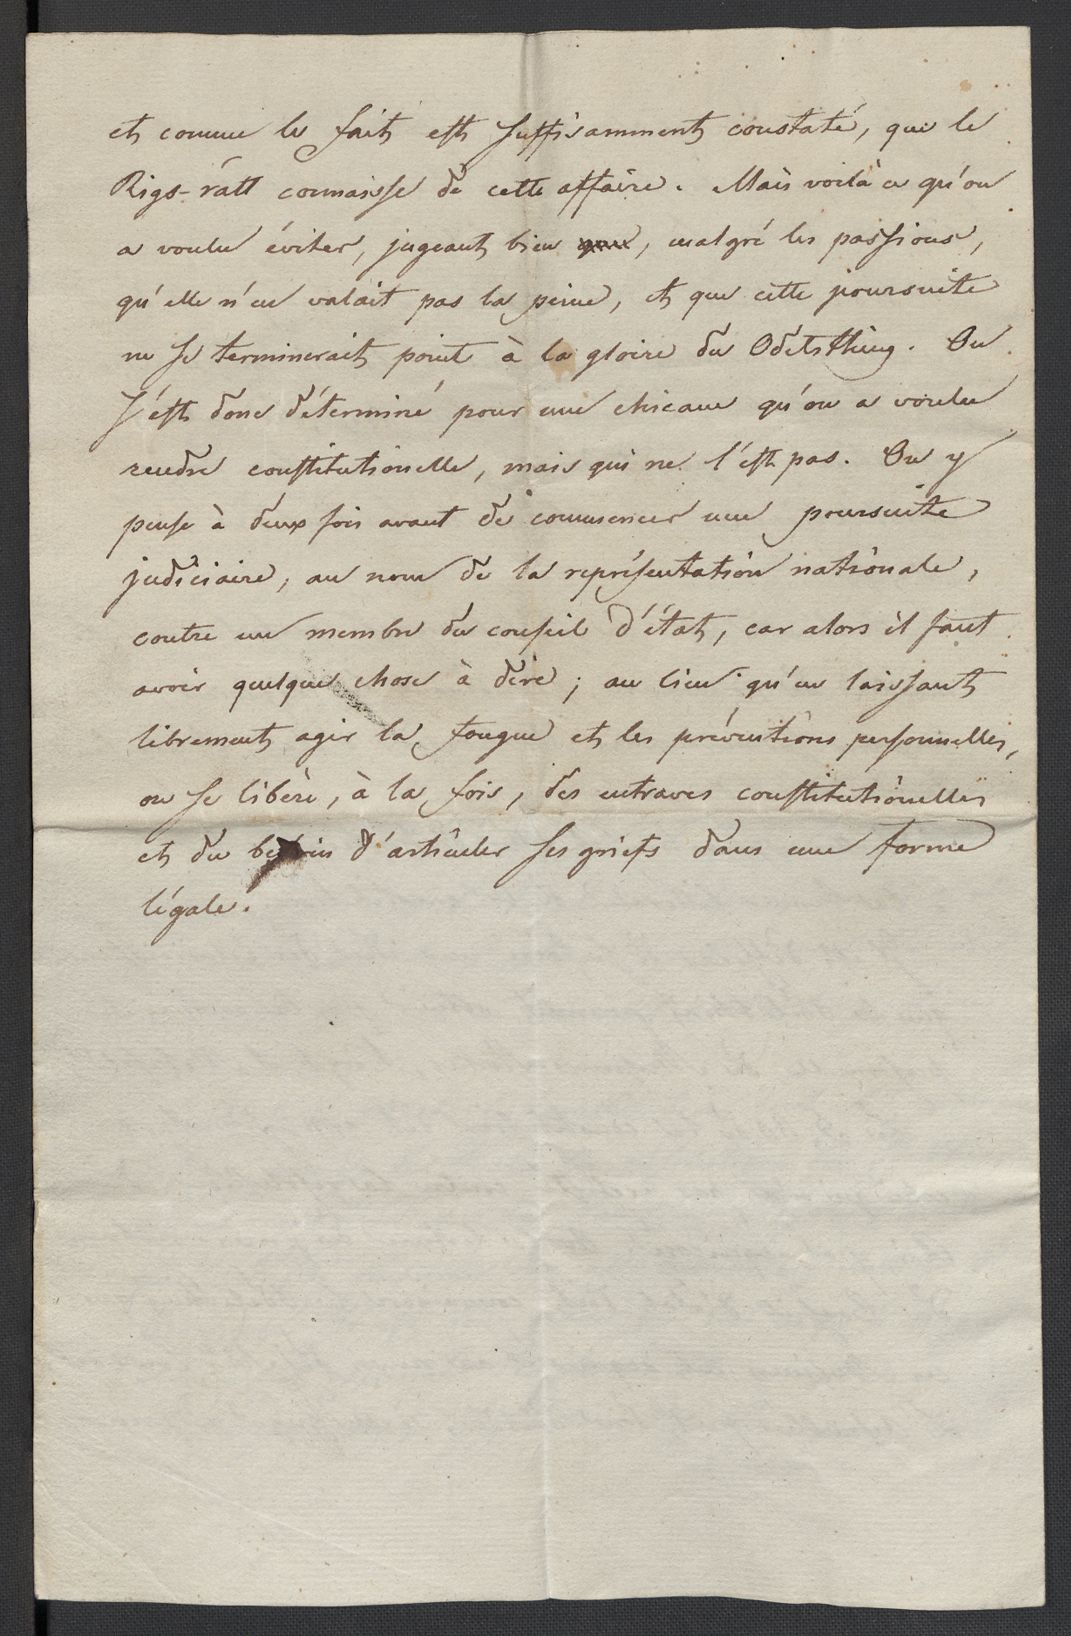 et comme le fait est suffisamment constaté, que le
Rigs-rätt connaisse de cette affaire. Mais voilà ce qu'on
a voulu éviter, jugeant bien que, malgré les passions,
qu'elle n'en valait pas la peine, et que cette poursuite
ne se terminerait point à la gloire du Odelsthing. On
s'est donc déterminé pour une chicane qu'on a voulu
rendre constitutionelle, mais qui ne l'est pas. On y
pense à deux fois avant de commencer une poursuite
judiciaire, au nom de la représentation nationale,
contre un membre du conseil d'état, car alors il faut
avoir quelque chose à dire; au lieu qu'en laissant
librement agir la fougue et les préventions personnelles,
on se libère, à la fois, des entraves constitutionelles
et du besoin d'articuler ses griefs dans une forme
légale.